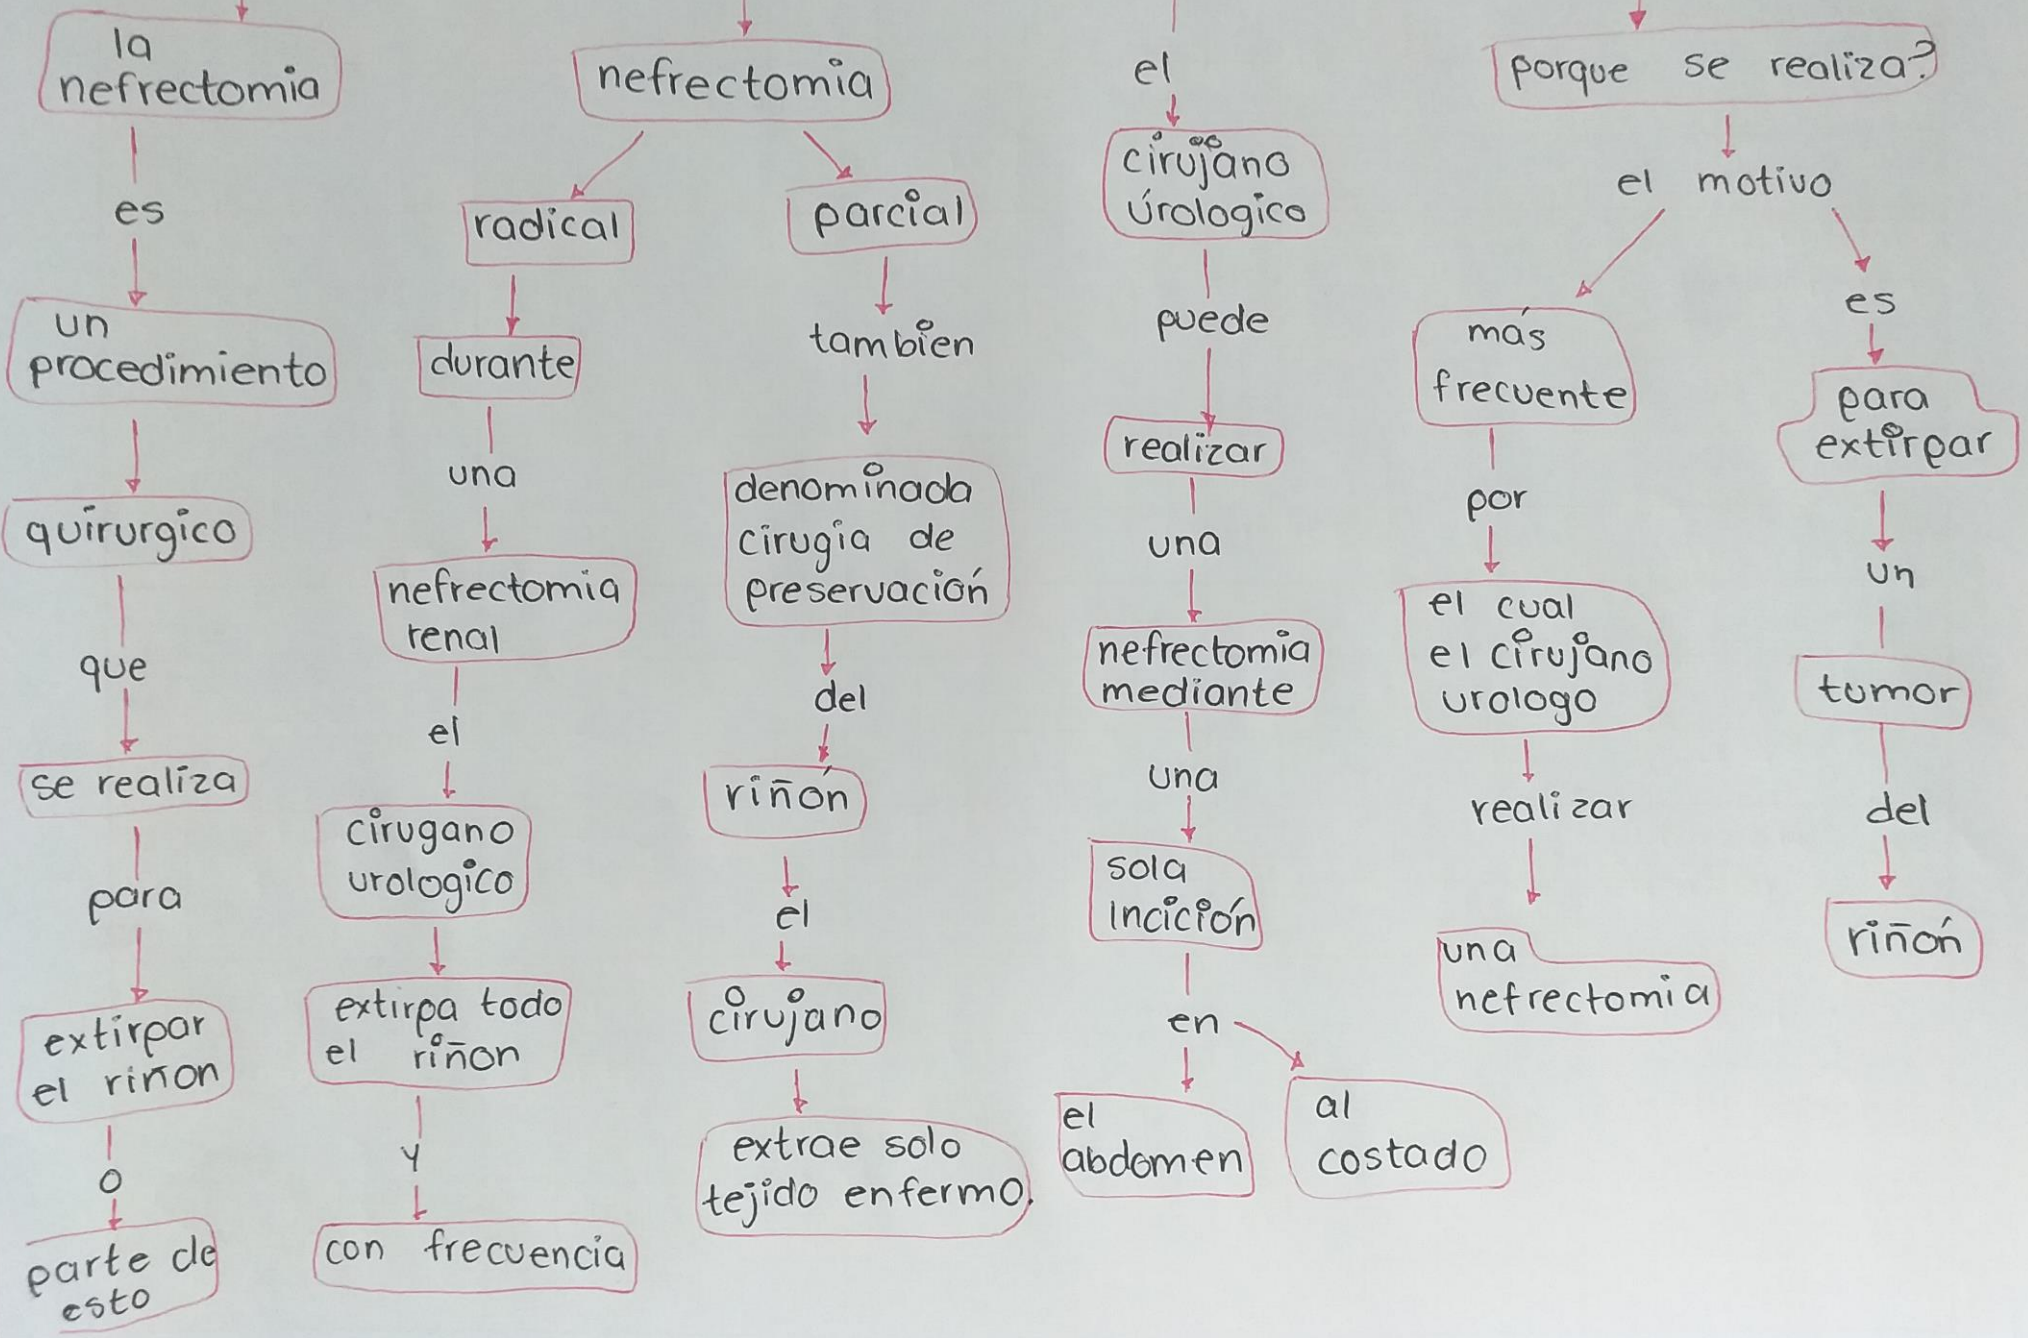 la
nefrectomia
es
un
procedimiento
quirurgico
que
se realiza
para
extirpar
el riñon
o
parte de
esto
nefrectomia
radical
durante
una
nefrectomia
renal
el
cirugano
urologico
extirpa todo
el riñon
y
con frecuencia
parcial
tambien
denominada
cirugia de
preservación
del
riñón
el
cirujano
extrae solo
tejido enfermo.
el
cirujano
úrologico
puede
realizar
una
nefrectomia
mediante
una
sola
incición
en
el
abdomen
al
costado
porque se realiza?
el motivo
más
frecuente
por
el cual
el cirujano
urologo
realizar
una
nefrectomia
es
para
extirpar
un
tumor
del
riñón